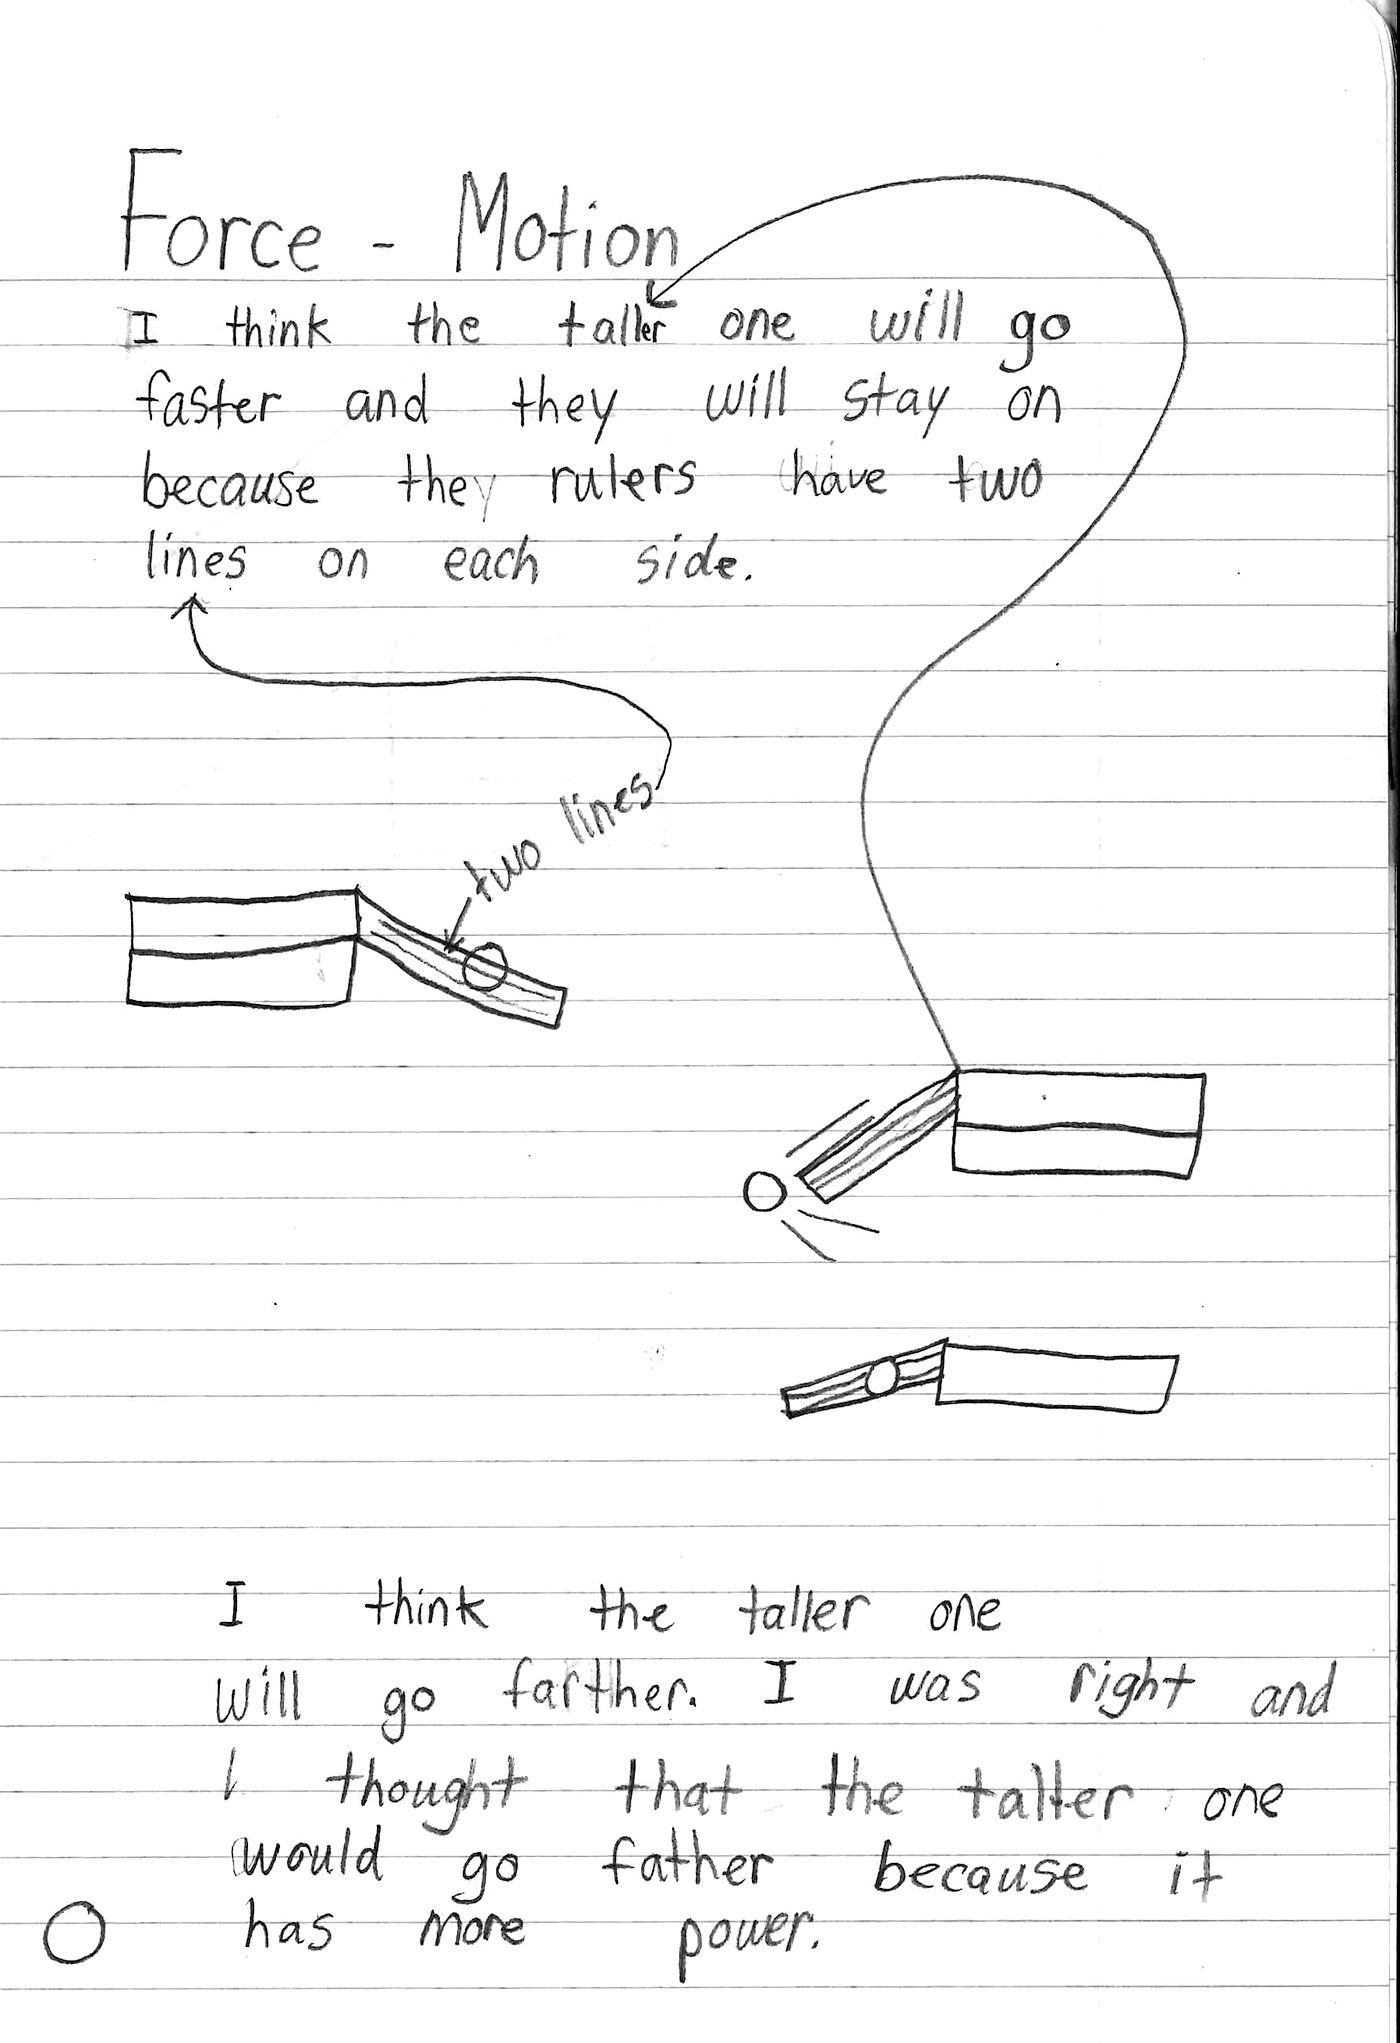 Force - Motion
I think the taller one will go
faster and they will stay on
because they rulers have two
lines on each side.
two lines
I think the taller one
will go farther. I was right and
I thought that the taller one
would go father because it
has more power.